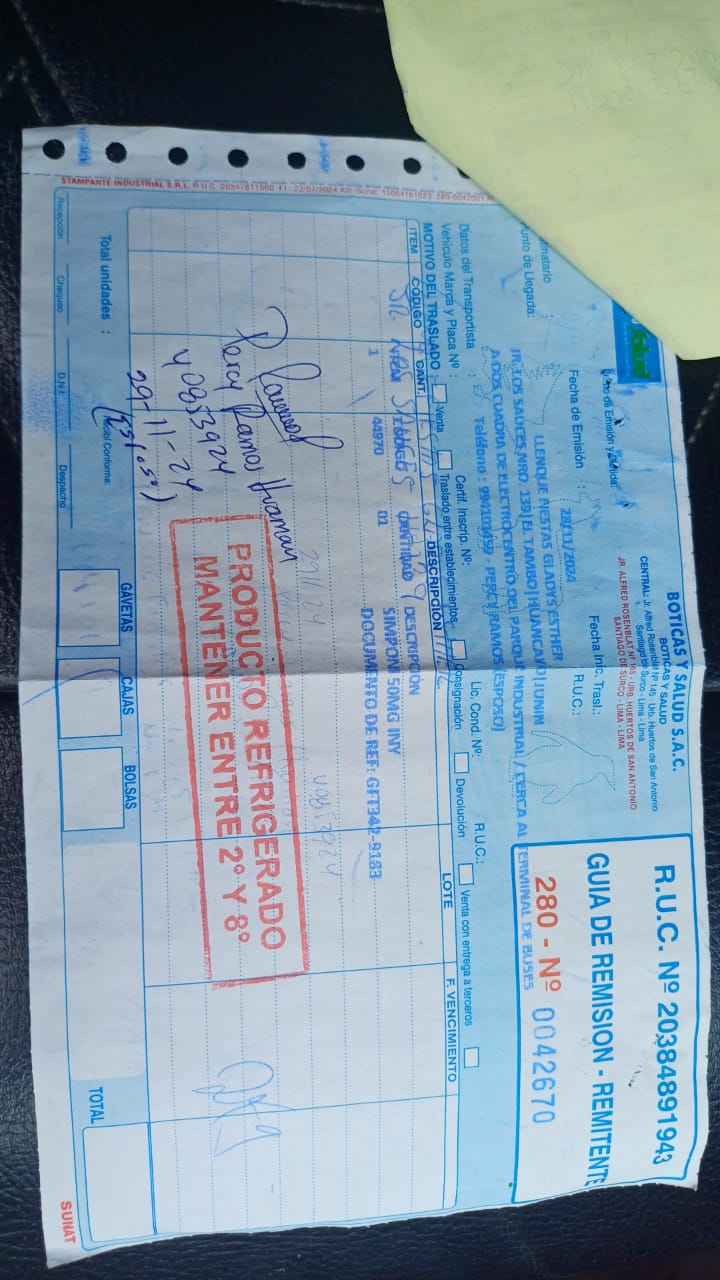 BOTICAS Y SALUD S.A.C.
BOTICAS Y SALUD
CENTRAL: Jr. Alfred Rosenblat Nº 145 - Urb. Huertos de San Antonio
Santiago de Surco - Lima - Lima
JR. ALFRED ROSENBLAT Nº 165 - URB. HUERTOS DE SAN ANTONIO
SANTIAGO DE SURCO - LIMA - LIMA
R.U.C. Nº 20384891943
GUIA DE REMISION - REMITENTE
280 - Nº 0042670
Salud
Fecha de Emisión : 28/11/2024
Fecha Inic. Trasl.:
R.U.C.:
LLENQUE FIESTAS GLADYS ESTHER
unto de Llegada:
JR. LOS SAUCES NRO. 139| EL TAMBO| HUANCAYO| JUNIN
A DOS CUADRA DE ELECTROCENTRO DEL PARQUE INDUSTRIAL / CERCA AL TERMINAL DE BUSES
Teléfono : 994103459 - PERCY RAMOS (ESPOSO)
Datos del Transportista :
R.U.C.:
Vehículo Marca y Placa Nº :
Certif. Inscrip. Nº:
Lic. Cond. Nº:
MOTIVO DEL TRASLADO :
Venta
Traslado entre establecimientos
Consignación
Devolución
Venta con entrega a terceros
ITEM CÓDIGO CANT. DESCRIPCIÓN LOTE F. VENCIMIENTO
CANTIDAD DESCRIPCIÓN
1 44970 01 SIMPONI 50MG INY
DOCUMENTO DE REF: GIT342-9183
29/11/24
40853924
Percy Ramos Huamán
40853924
29-11-24
(Esposo)
PRODUCTO REFRIGERADO
MANTENER ENTRE 2° Y 8°
Total unidades :
Recibí Conforme:
GAVETAS
CAJAS
BOLSAS
TOTAL
Recepción
Chequeo
D.N.I.
Despacho
SUNAT
STAMPANTE INDUSTRIAL S.R.L. R.U.C. 20547811560 F.I. 22/07/2024 Aut. Sunat.